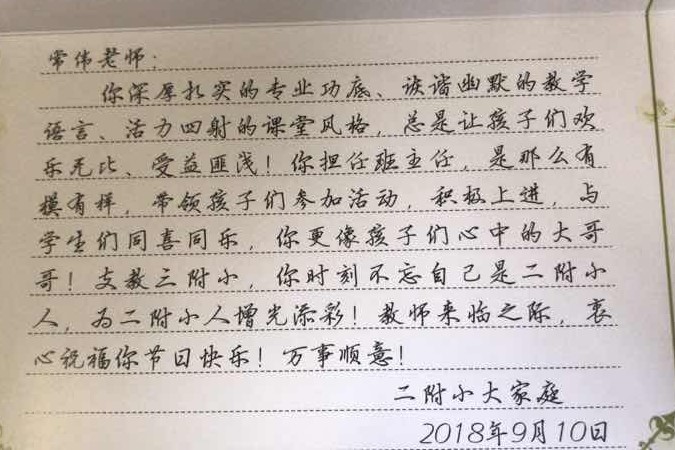 常伟老师:
你深厚扎实的专业功底、诙谐幽默的教学
语言、活力四射的课堂风格,总是让孩子们欢
乐无比、受益匪浅!你担任班主任,是那么有
模有样,带领孩子们参加活动,积极上进,与
学生们同喜同乐,你更像孩子们心中的大哥
哥!支教三附小,你时刻不忘自己是二附小
人,为二附小人增光添彩!教师来临之际,衷
心祝福你节日快乐!万事顺意!
二附小大家庭
2018年9月10日